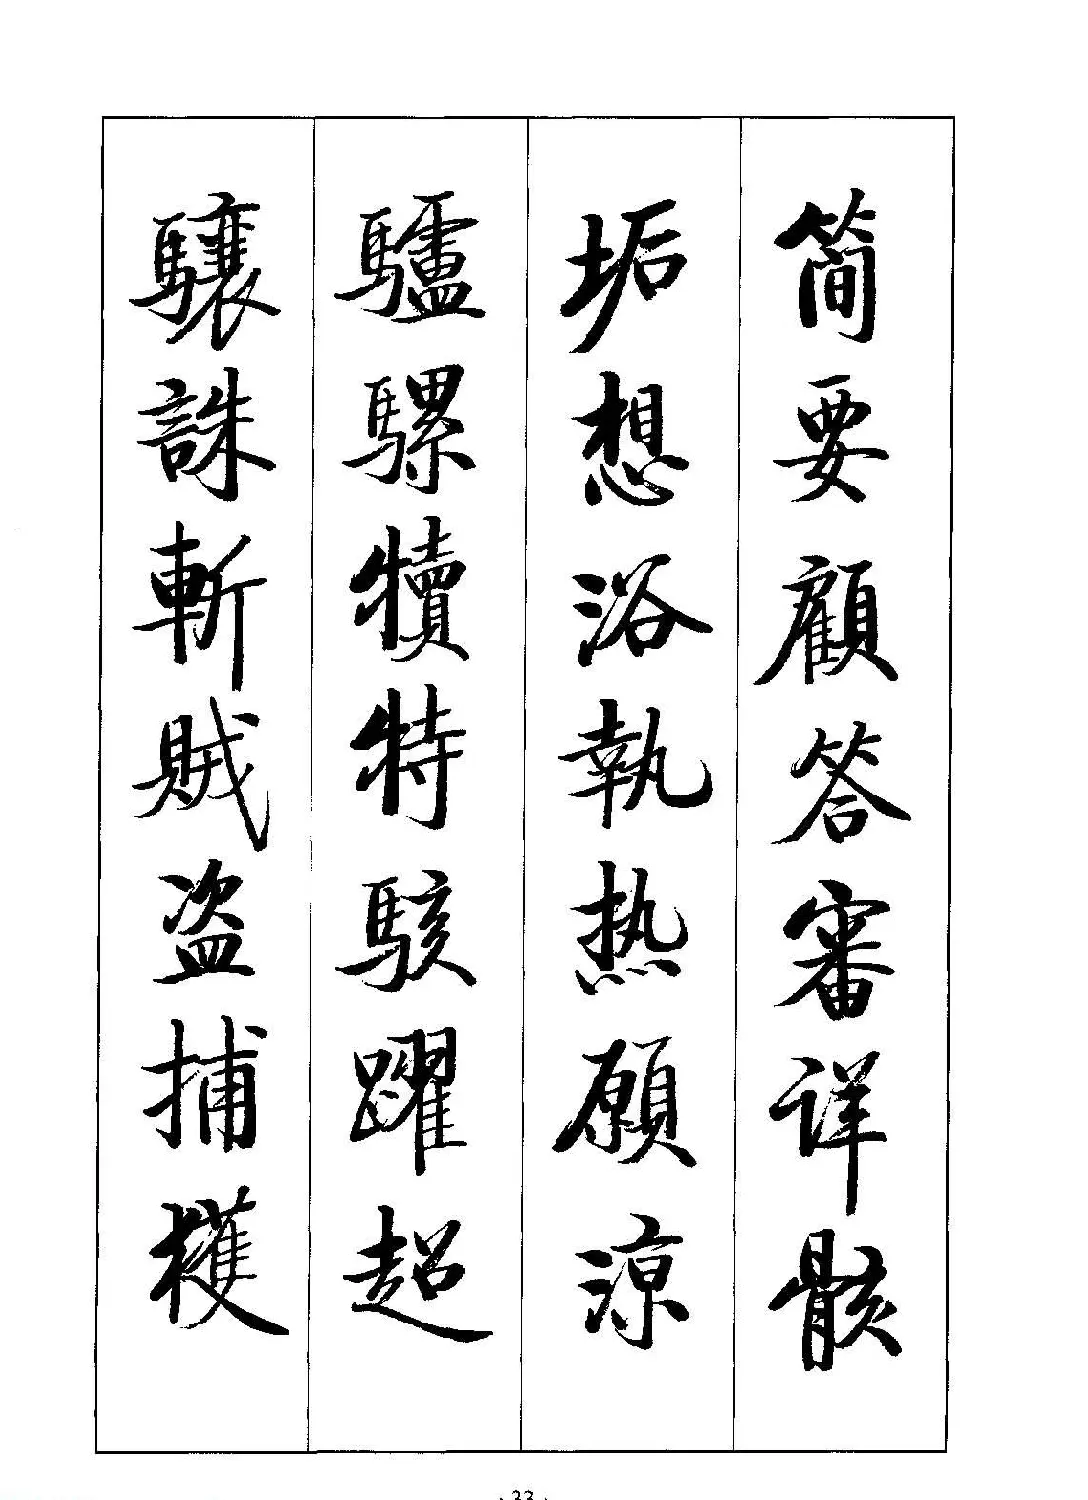 简要顧答審详骸
垢想浴執热願涼
驢騾犢特駭躍超
驤誅斬賊盗捕獲
33